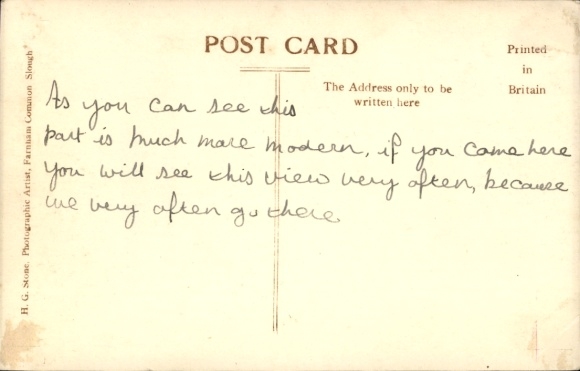 POST CARD
Printed
in
Britain
The Address only to be
written here
H. G. Stone, Photographic Artist, Farnham Common Slough
As you can see this
part is much more modern, if you come here
you will see this view very often, because
we very often go there.